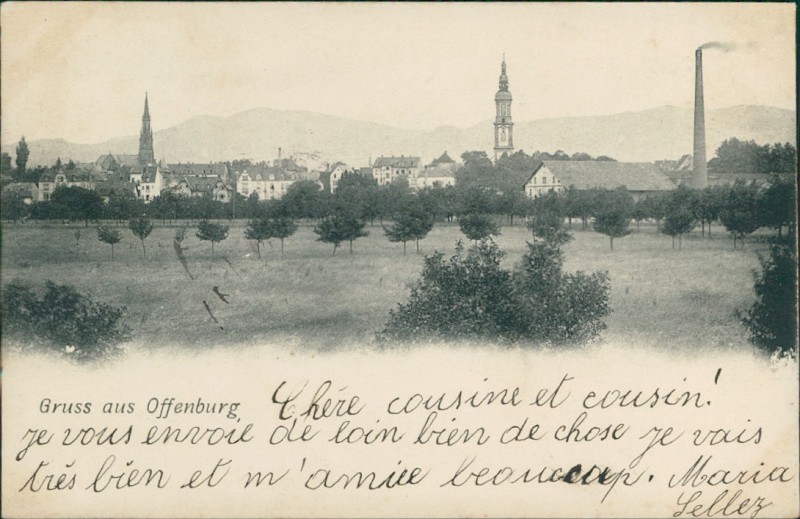 Gruss aus Offenburg
Chére cousine et cousin!
je vous envoié de loin bien de chose je vais
très bien et m'amiie beaucoup. Maria
Lellez